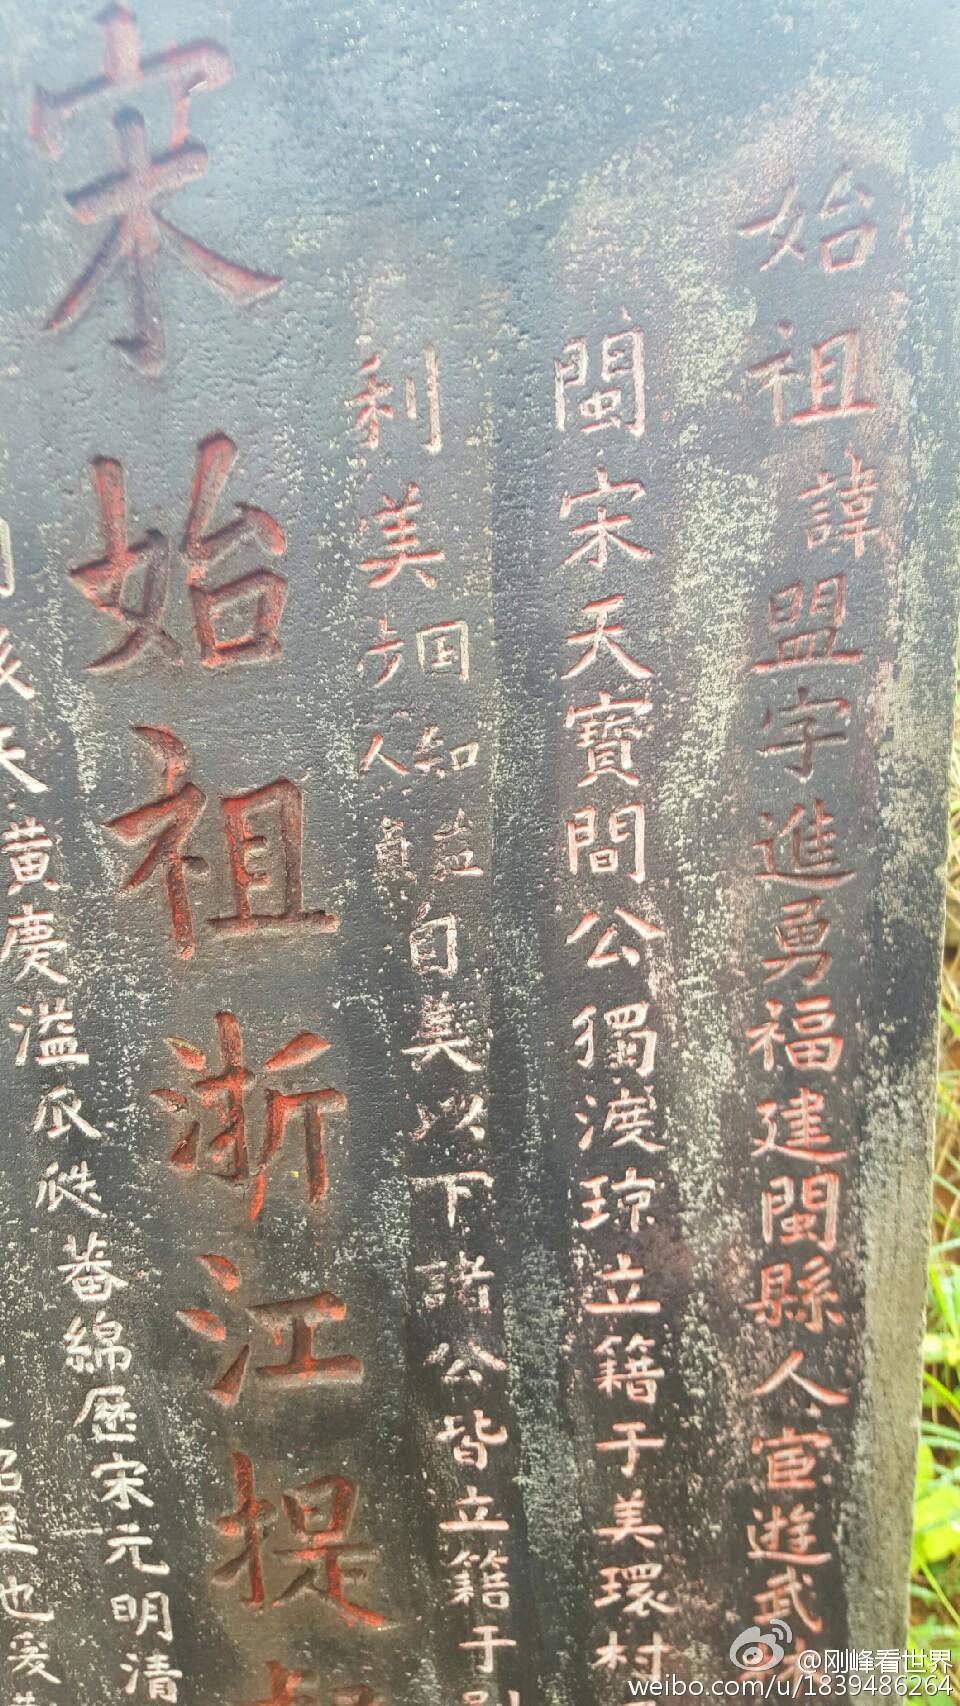 始祖諱盟字進勇福建閩縣人宦遊武
閩宋天寶間公獨渡琼立籍于美環村
利美國知益自美以下諸公皆立籍于
步人
宋始祖浙江提
黄慶溢瓜瓞蕃綿歷宋元明清
也爰
@刚峰看世界
weibo.com/u/1839486264